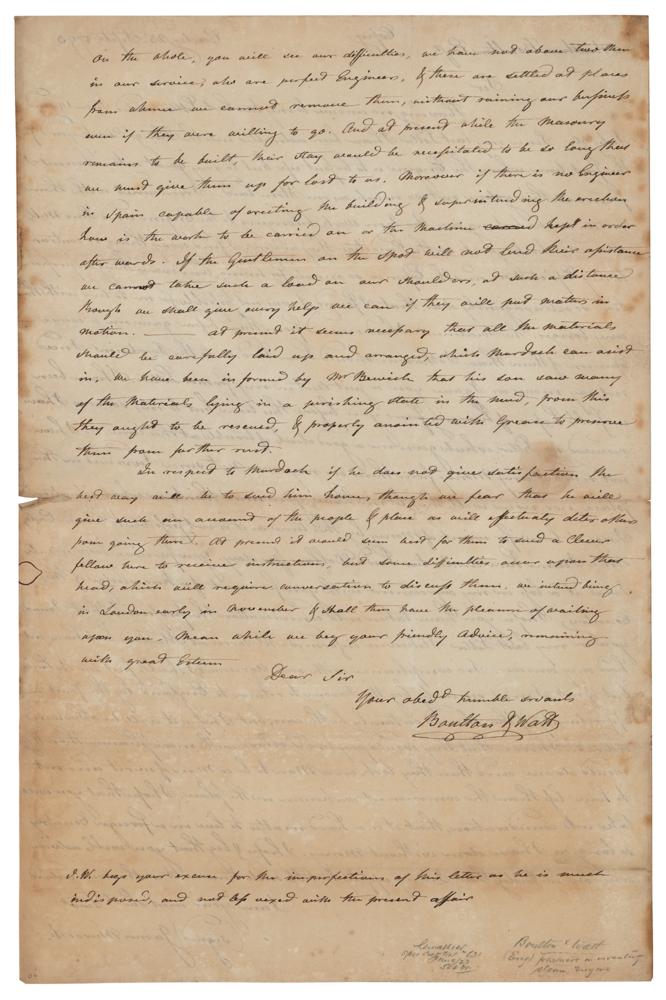 On the whole, you will see our difficulties, we have not above two Men
in our service, who are perfect Engineers, & these are settled at places
from whence we cannot remove them, without ruining our business
even if they were willing to go. And at present while the Masonry
remains to be built, their stay would be necessitated to be so long that
we must give them up for lost to us. Moreover if there is no Engineer
in Spain capable of erecting the building & superintending the erection
how is the work to be carried on or the Machine kept in order
after wards. If the Gentlemen on the Spot will not lend their assistance
we cannot take such a load on our shoulders, at such a distance
though we shall give every help we can if they will put matters in
motion. ——— at present it seems necessary that all the materials
should be carefully laid up and arranged, which Murdoch can assist
in, we have been informed by Mr Bewick that his son saw many
of the Materials lying in a perishing state in the mud, from this
they ought to be rescued, & properly anointed with Grease to preserve
them from further rust.
In respect to Murdoch if he does not give satisfaction the
best way will be to send him home, though we fear that he will
give such an account of the people & place as will effectualy deter others
from going there. At present it would seem best for them to send a Clever
fellow here to receive instructions, but some difficulties occur upon that
head, which will require conversation to discuss them, we intend being
in London early in November & shall then have the pleasure of waiting
upon you. Mean while we beg your friendly Advice, remaining
with great Esteem
Dear Sir
Your obedt humble servants
Boulton & Watt
J.W. begs your excuse for the imperfections of this letter as he is much
indisposed, and not less vexed with the present affair
Boulton & Watt
(Eng) partners in inventing
steam engine